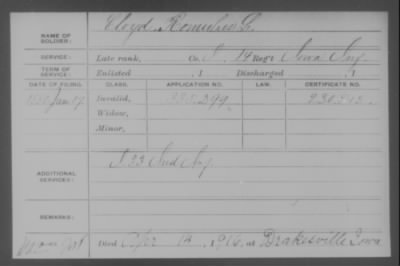 NAME OF SOLDIER: Cloyd, Romulus G.
SERVICE: Late rank, Co. I, 14 Reg't Iowa Inf.
TERM OF SERVICE: Enlisted , 1 Discharged , 1
DATE OF FILING. CLASS. APPLICATION NO. LAW. CERTIFICATE NO.
1880 Jan. Invalid,
Widow,
Minor,
ADDITIONAL SERVICES: I 33 Ind Inf.
REMARKS:
Died Apr 12, 1916, at Drakesville Iowa